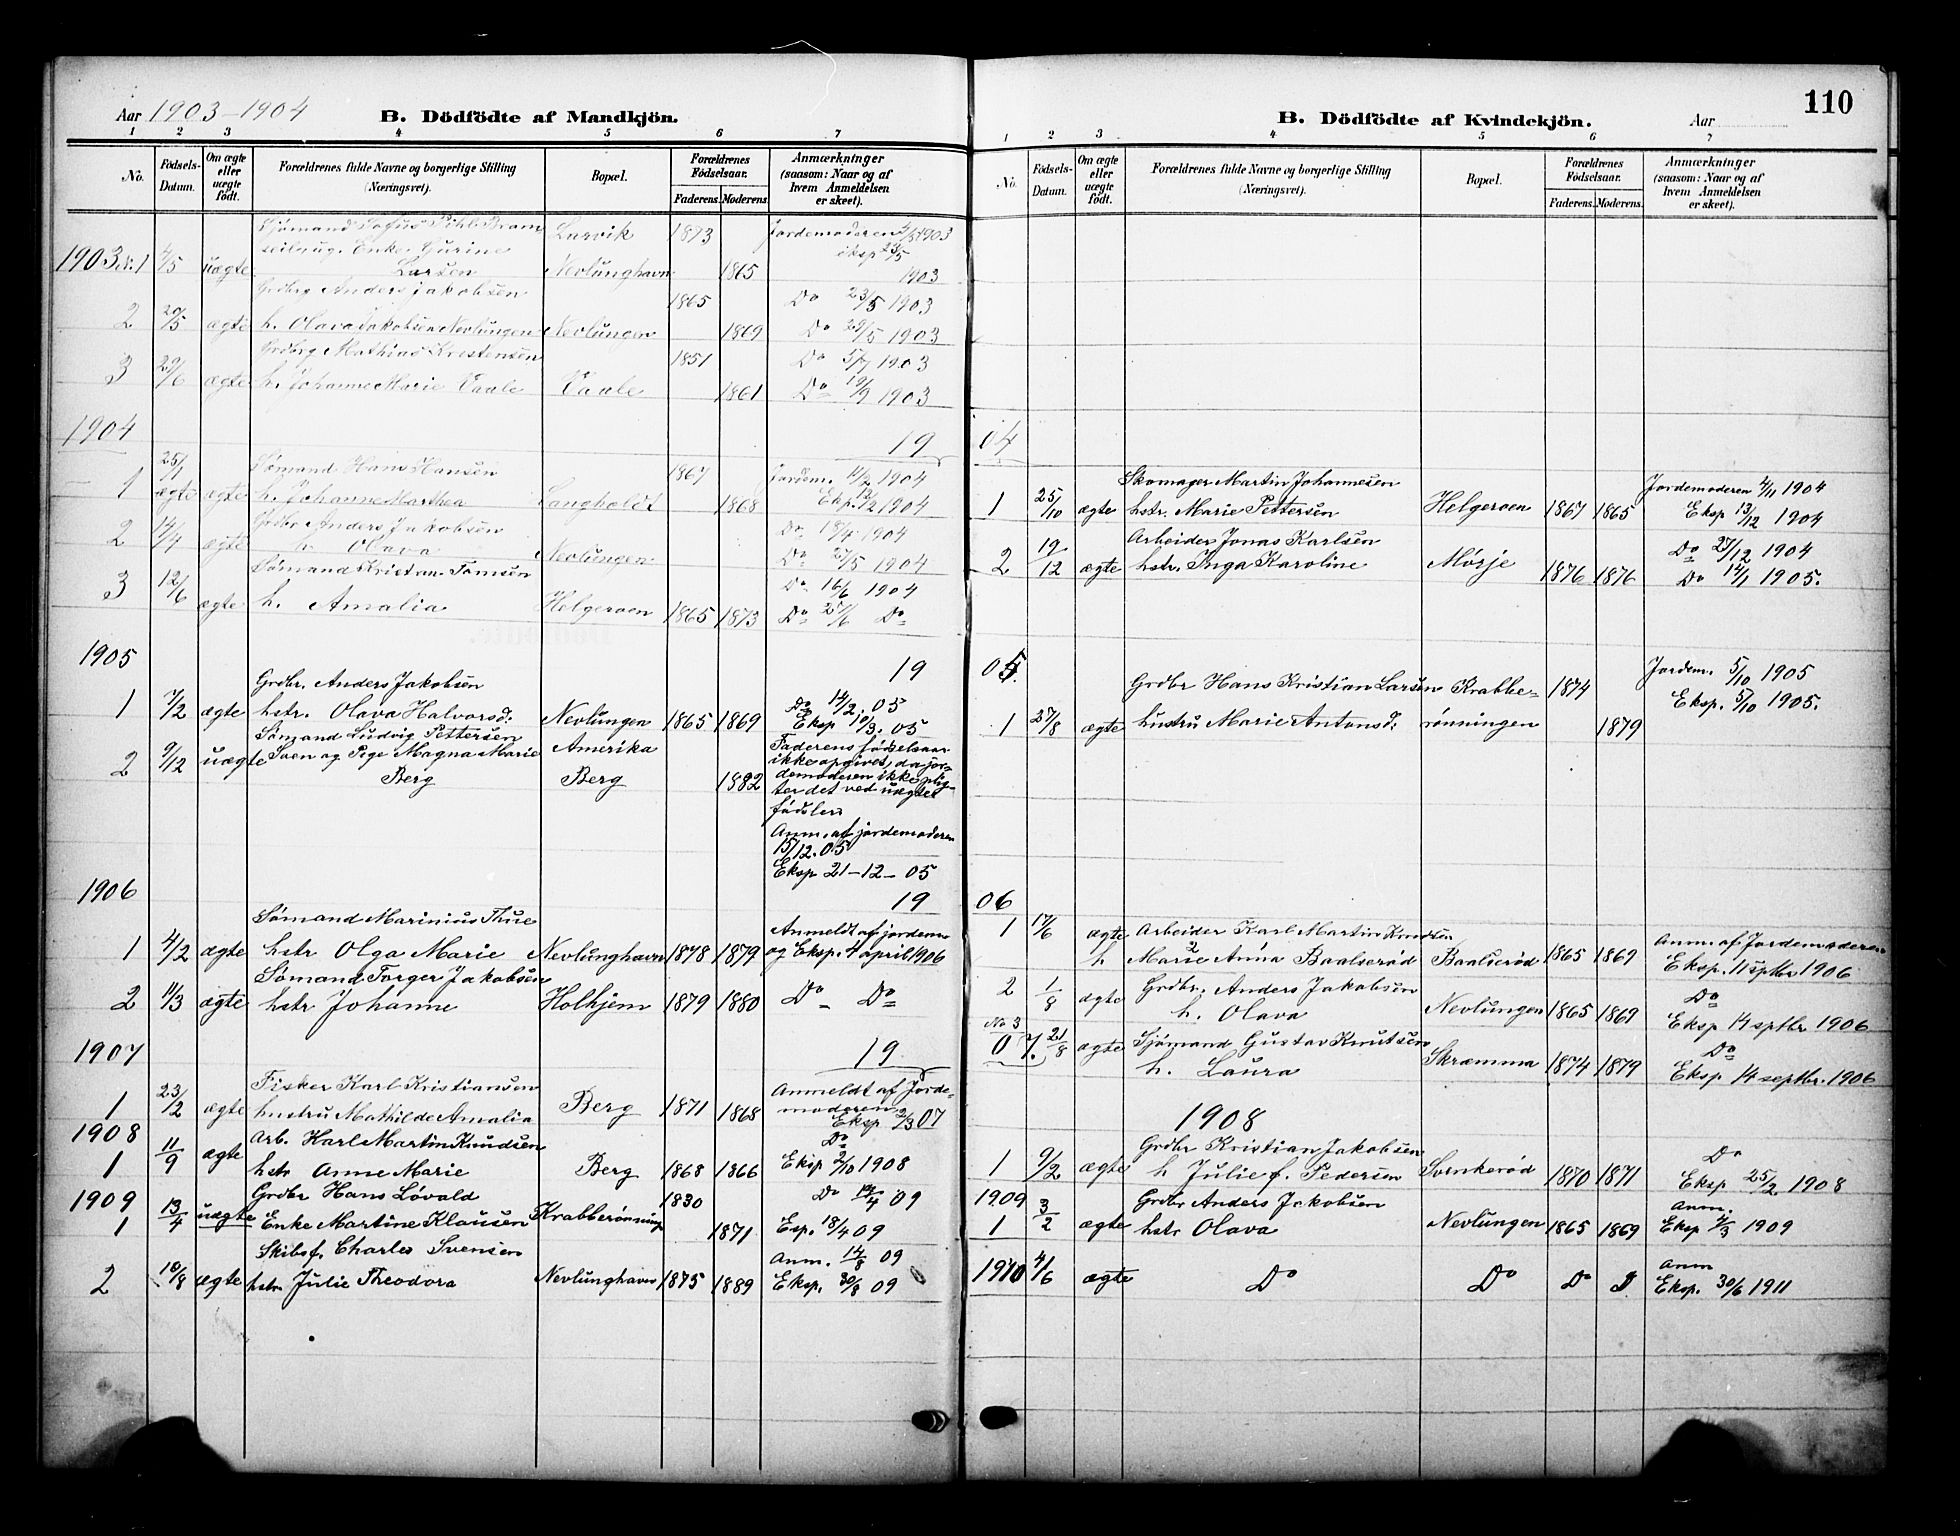 Aar 1903-1904 B. Dödfödte af Mandkjön.
1 2 3 4 5 6 7
No. Födsels-Datum. Om ægte eller uægte födt. Forældrenes fulde Navne og borgerlige Stilling (Næringsvei). Bopæl. Forældrenes Födselsaar. Faderens. Moderens. Anmærkninger (saasom: Naar og af hvem Anmeldelsen er skeet).
Sjømand Sofus Larvik 1873 Jordemoderen 1903
Enke Gurine eksp 23/5
1903 1 4/5 uægte Larsen Nevlunghavn 1865 1903
Grdbrg Anders Jakobsen 1865 Do 23/5 1903
2 20/5 ægte h. Olava Jakobsen Nevlungen Nevlungen 1869 Do 29/5 1903
Grdbrg Mathias Kristensen 1851 Do 5/7 1903
3 29/6 ægte h. Johanne Marie Vaale Vaale 1861 Do 19/9 1903
1904 19
25/1 Sømand Hans Hansen 1867 Jordem. 11/2 1904
1 ægte ægte h. Johanne Marthea Langholdt 1868 Eksp. 12/2 1904
Grdbr Anders Jakobsen Do 18/4 1904
2 14/4 ægte h. Olava Nevlungen Do 27/5 1904
Sømand Kristian Tomsen Do 16/6 1904
3 12/6 ægte h. Amalia Helgeroen 1865 1873 Do 27/6 Do
1905 19
Grdbr. Anders Jakobsen Do 14/2. 05
1 7/2 ægte hstr. Olava Halvorsd. Nevlungen 1865 1869 Eksp 10/3. 05
Sømand Ludvig Pettersen Amerika Faderens fødselsaar
2 9/12 uægte Soen og Pige Magna Marie ikke opgivet, da jor-
Berg Berg 1882 demoderen ikke plig-
ter det ved uægte
fødsler
Anm. af jordemoderen
15/12. 05
Eksp 21-12-05
1906 19
Sømand Marinius Thue Anmeldt af jordem
1 4/2 ægte hstr Olga Marie Nevlunghavn 1878 1879 og Eksp. 4 april 1906
Sømand Torger Jakobsen
2 11/3 ægte hstr Johanne Holhjem 1879 1880 Do Do
1907 19
Fisker Karl Kristiansen Anmeldt af Jorde-
1 23/2 ægte hustru Mathilde Amalia Berg 1871 1868 moderen
Eksp 2/3 07
1908 Arb. Karl Martin Knudsen Do
1 11/9 ægte hstr Anne Marie Berg 1868 1866 Eksp 2/10 1908
1909 Grdbr Hans Løvald 1830 Do 14/4 09
1 13/4 uægte Enke Martine Klausen Krabberønning 1871 Esp. 18/4 09
Skibsf. Charles Svensen Anm. 14/8 09
2 10/8 ægte hstr. Julie Theodora Nevlunghavn 1875 1889 Eksp. 30/8 09
110
B. Dödfödte af Kvindekjön. Aar
1 2 3 4 5 6 7
No. Födsels-Datum. Om ægte eller uægte födt. Forældrenes fulde Navne og borgerlige Stilling (Næringsvei). Bopæl. Forældrenes Födselsaar. Faderens. Moderens. Anmærkninger (saasom: Naar og af hvem Anmeldelsen er skeet).
04
Skomager Martin Johannesen Jordemoderen 4/11 1904
1 25/10 ægte hstr. Marie Pettersen Helgeroen 1867 1865 Eksp 13/12 1904
Arbeider Jonas Karlsen Do 27/12 1904
2 19/12 ægte hstr. Inga Karoline Mørje 1876 1876 Do 14/1 1905.
05. Jordem. 5/10 1905
Grdbr Hans Kristian Larsen Krabbe- 1874 Eksp. 5/10 1905.
1 27/8 ægte hustru Marie Antonsd. rønningen 1879
06
1 17/6 ægte Arbeider Karl Martin Knudsen Anm. af Jordemoderen
h Marie Anna Baalserød Baalserød 1865 1869 Eksp. 11 septbr 1906
2 1/8 ægte Grdbr. Anders Jakobsen Do
h. Olava Nevlungen 1865 1869 Eksp 14 septbr 1906
No 3
07. 21/8 ægte Sjømand Gustav Knutsen Do
h. Laura Skræmma 1874 1879 Eksp 14 septbr. 1906
1908
Grdbr Kristian Jakobsen Do
1 9/2 ægte h Julie f. Pedersen Svenkerød 1870 1871 Eksp 25/2 1908
1909 Grdbr Anders Jakobsen Anm.
1 3/2 ægte hstr Olava Nevlungen 1865 1869 Eksp 4/3 1909
Anm
1910 4/6 ægte Do Do Do D Eksp. 30/6 1911